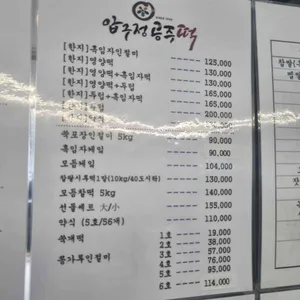 압구정 공주떡
[한지]흑임자인절미 ------ 125,000
[한지]영양떡 ------ 130,000
[한지]영양떡+흑임자떡 ------ 130,000
[한지]영양떡+두텁 ------ 165,000
[한지]두텁+흑임자떡 ------ 165,000
두텁 ------ 200,000
쑥포장인절미 5kg ------ 90,000
흑임자케잌 ------ 90,000
모듬케잌 ------ 104,000
찹쌀시루떡1말(10kg/40도시락) ------ 130,000
모듬찰떡 5kg ------ 140,000
선물세트 大/小 ------ 155,000
약식 (5호/56개) ------ 110,000
쑥개떡 1호 ------ 19,000
콩가루인절미 2호 ------ 38,000
3호 ------ 57,000
4호 ------ 76,000
5호 ------ 95,000
6호 ------ 114,000
찹쌀